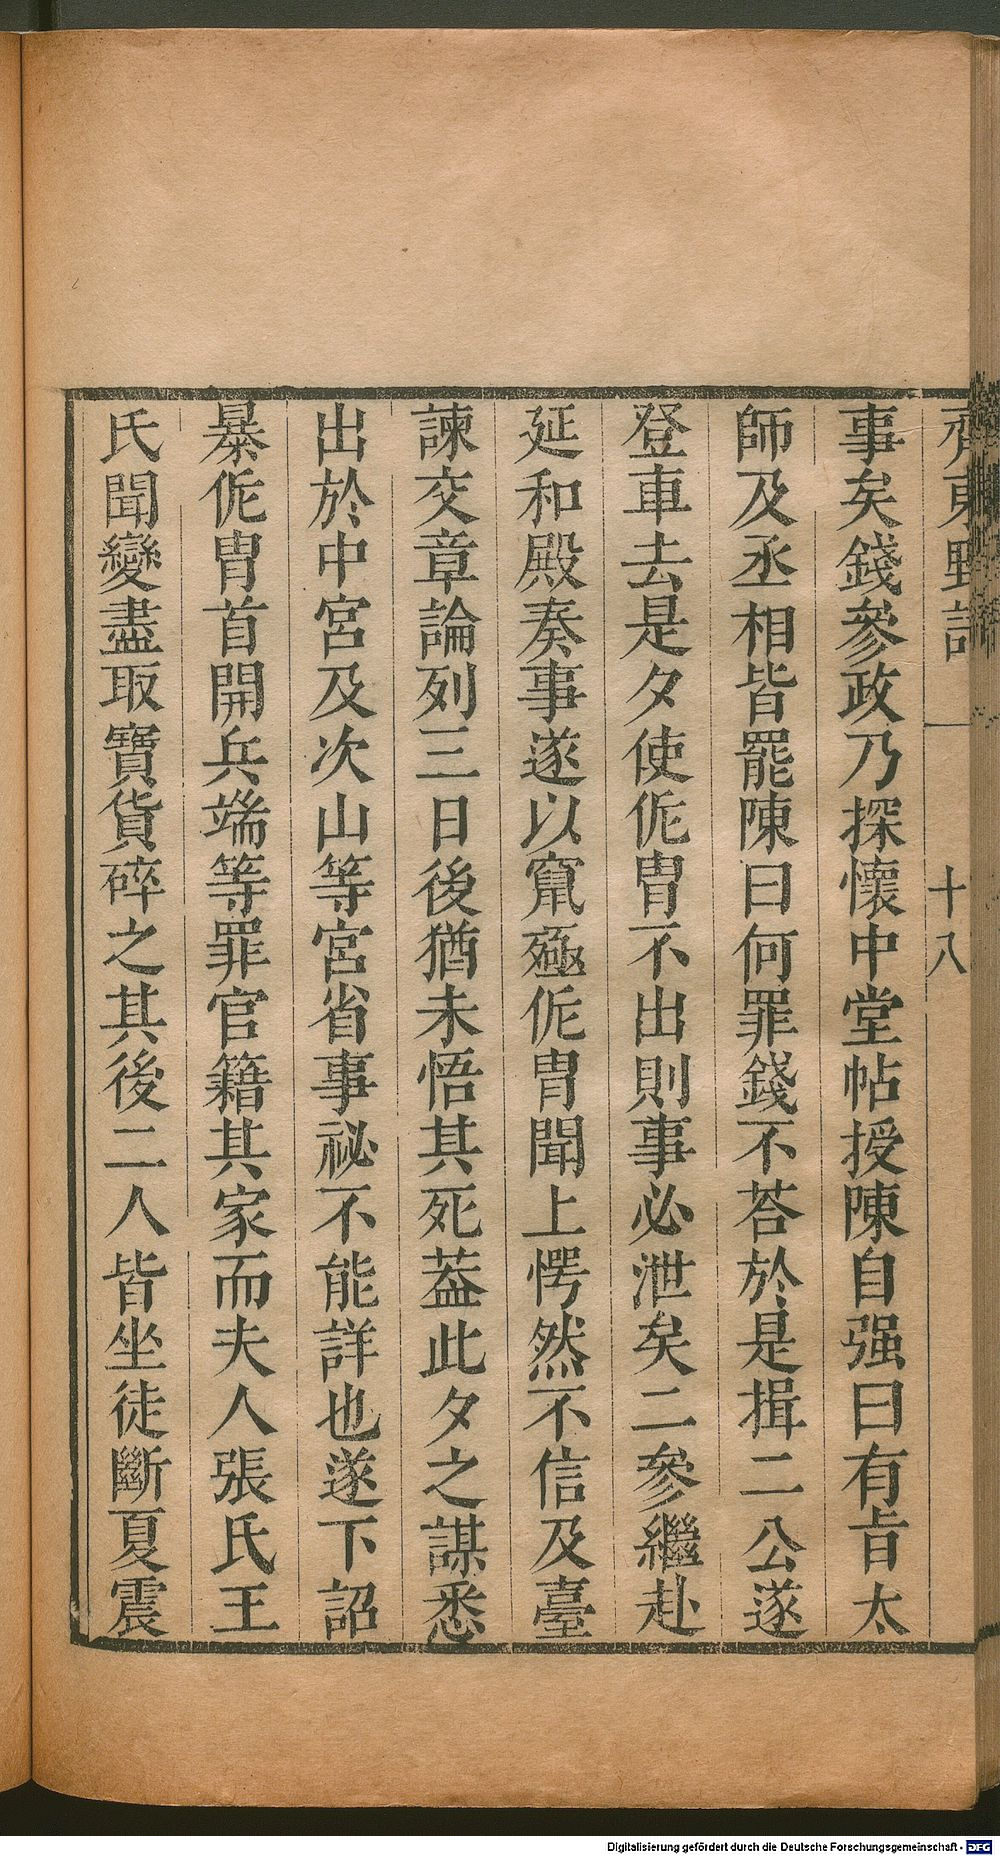 齊東野語
十八
事矣錢參政乃探懷中堂帖授陳自强曰有旨太
師及丞相皆罷陳曰何罪錢不荅於是揖二公遂
登車去是夕使侂胄不出則事必泄矣二參繼赴
延和殿奏事遂以竄殛侂胄聞上愕然不信及臺
諫交章論列三日後猶未悟其死葢此夕之謀悉
出於中宮及次山等宮省事祕不能詳也遂下詔
暴侂胄首開兵端等罪官籍其家而夫人張氏王
氏聞變盡取寶貨碎之其後二人皆坐徒斷夏震
Digitalisierung gefördert durch die Deutsche Forschungsgemeinschaft - DFG